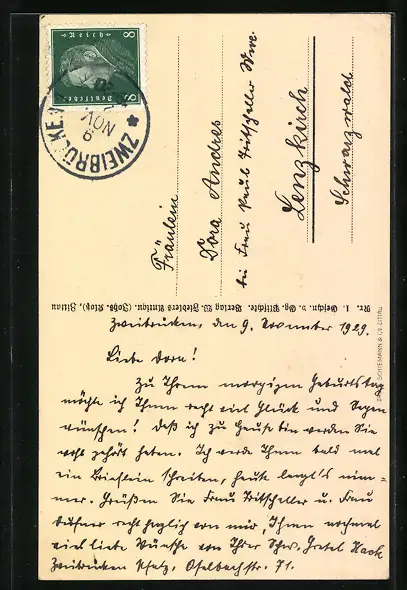 8 Deutsches Reich 8
ZWEIBRÜCKEN
9. NOV.
Fräulein
Dora Andres
bei Frau Paul Tritscheller Wwe.
Lenzkirch
Schwarzwald
Nr. 1. Gezchn. v. Gg. Verlag W. Fiedlers Antiqu. (Johs. Klotz), Zittau
Zweibrücken, den 9. November 1929.
Liebe Dora!
Zu Ihrem morgigen Geburtstag
möchte ich Ihnen recht viel Glück und Segen
wünschen! Daß ich zu Hause bin werden Sie
wohl gehört haben. Ich werde Ihnen bald mal
ein Brieflein schreiben, heute langt's nim-
mer. Grüßen Sie Frau Tritscheller u. Frau
recht herzlich von mir, Ihnen nochmal
viel liebe Wünsche von Ihrer Schw. Gretel Hack
Zweibrücken Pfalz, Oselbachstr. 71.